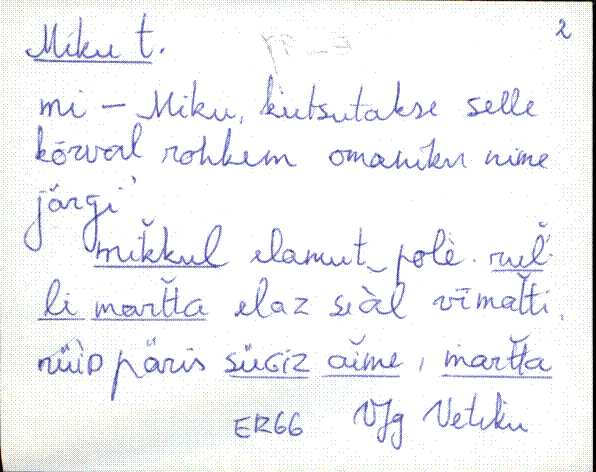 Miku t. 2
mi – Miku, kutsutakse selle
kõrval rohkem omaniku nime
järgi
mik̆kul elamut polè. rul̆-
li mart̆ta elaz seàl vīmat̆ti,
nüìD päris süGiz aĭme, mart̆ta
ER66 VJg Vetiku